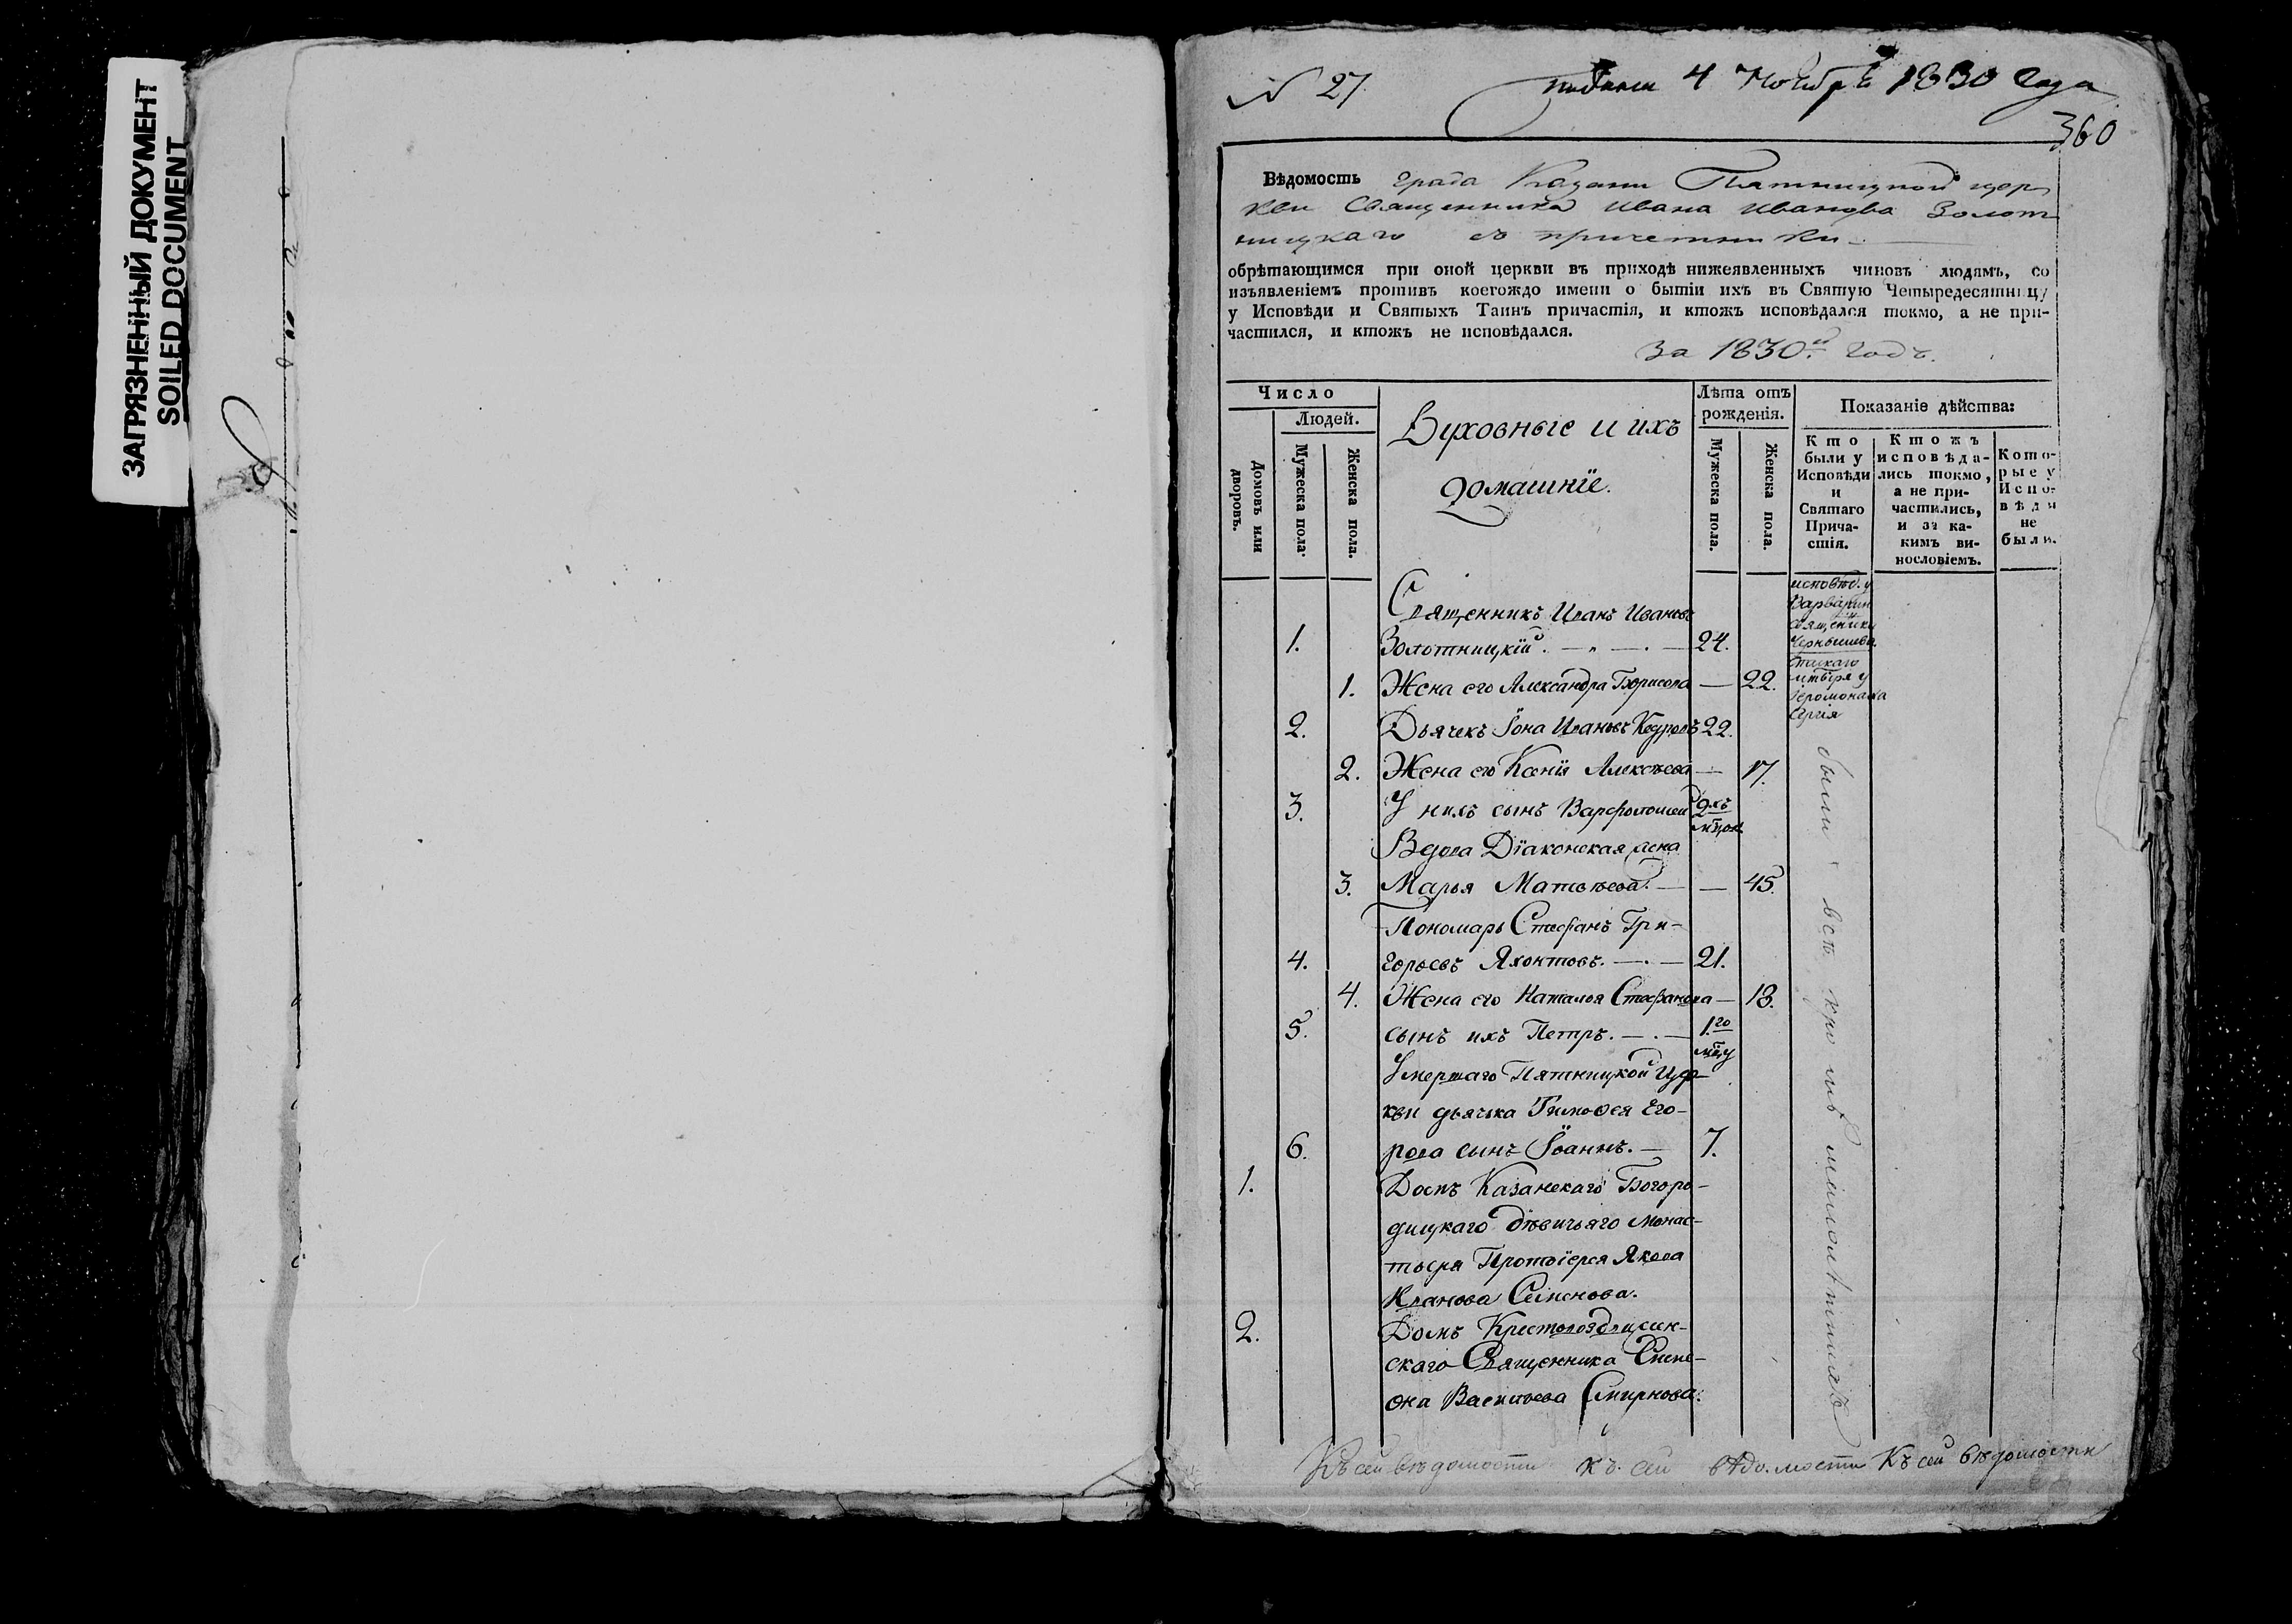 ЗАГРЯЗНЕННЫЙ ДОКУМЕНТ
SOILED DOCUMENT
N 27.
4 Ноября 1830 Года
360
Вѣдомость града Казани Пятницкой цер
кви Священника Ивана Иванова Золот
ницкаго съ причетники
обрѣтающимся при оной церкви въ приходѣ нижеявленныхъ чиновъ людямъ, со
изъявленіемъ противъ коегождо имени о бытіи ихъ въ Святую Четыредесятницу
у Исповѣди и Святыхъ Таинъ причастія, и ктожъ исповѣдался токмо, а не при-
частился, и ктожъ не исповѣдался.
За 1830й годъ.
Число
Людей.
Домовъ или дворовъ.
Мужеска пола.
Женска пола.
Духовные и ихъ
домашніе.
Лѣта отъ
рожденія.
Мужеска пола.
Женска пола.
Показаніе дѣйства:
Кто
были у
Исповѣди
и
Святаго
Прича-
стія.
Ктожъ
исповѣда-
лись токмо,
а не при-
частились,
и за ка-
кимъ ви-
нословіемъ.
Кото-
рые у
Испо-
вѣди
не
были.
Священникъ Иванъ Ивановъ
1. Золотницкій. 24.
1. Жена его Александра Борисова — 22.
2. Дьячекъ Іона Ивановъ Кедровъ 22.
2. Жена его Ксенія Алексѣева — 17.
3. У нихъ сынъ Варфоломей 2хъ мцов
Вдова Діаконская жена
3. Марья Матвѣева. — 45.
Пономарь Стефанъ Гри-
4. горьевъ Яхонтовъ. — 21.
4. Жена его Наталья Стефанова — 18.
5. сынъ ихъ Петръ. — 1.го мцу
Умершаго Пятницкой Цер-
кви дьячка Тимофея Его-
6. рова сынъ Іоаннъ. — 7.
1. Домъ Казанскаго Богоро-
дицкаго дѣвичьяго монас-
тыря Протоіерея Якова
Иванова Семенова.
2. Домъ Крестовоздвижен-
скаго Священника Симе-
она Васильева Смирнова.
исповѣд. у
Варварин
священика
Чернышева.
мтыря у
Іеромонаха
Сергія
были всѣ кромѣ малолѣтнихъ
Къ сей вѣдомости Къ сей вѣдомости Къ сей вѣдомости